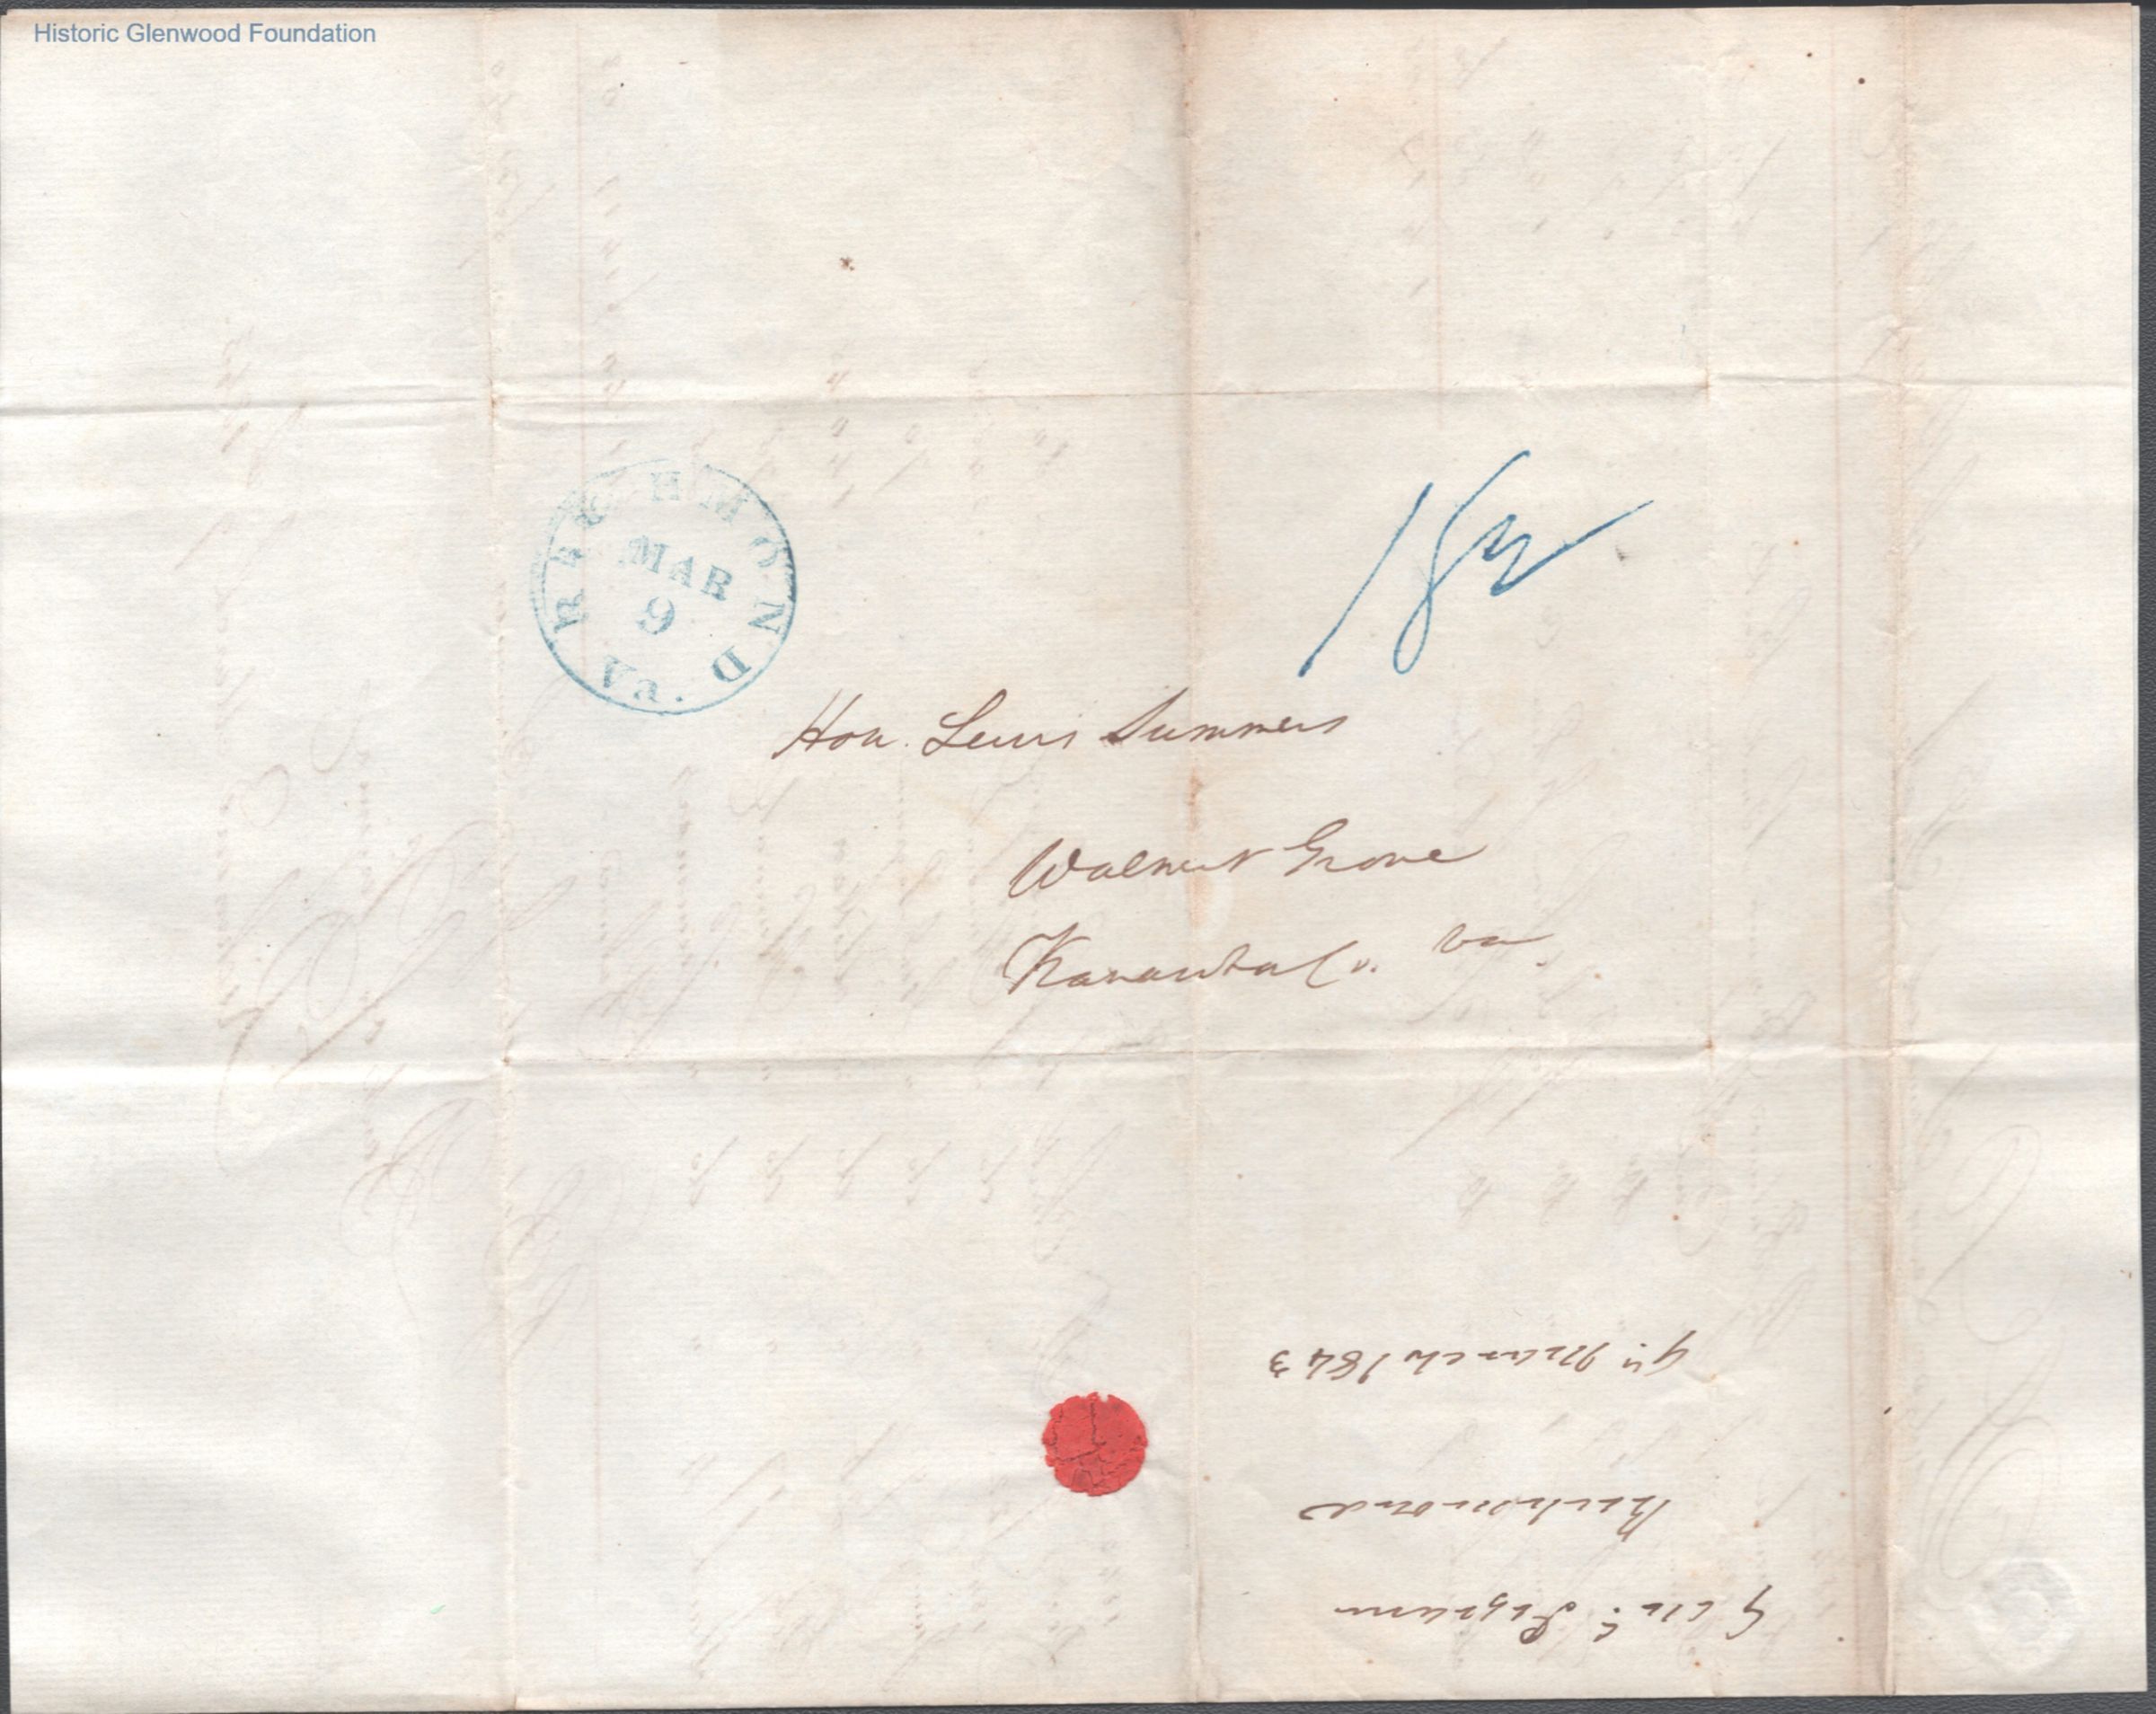 Historic Glenwood Foundation
RICHMOND Va.
MAR
9
18¾
Hon. Lewis Summers
Walnut Grove
Kanawha Co. Va
Gen:l Pegram
Richmond
9th March 1843